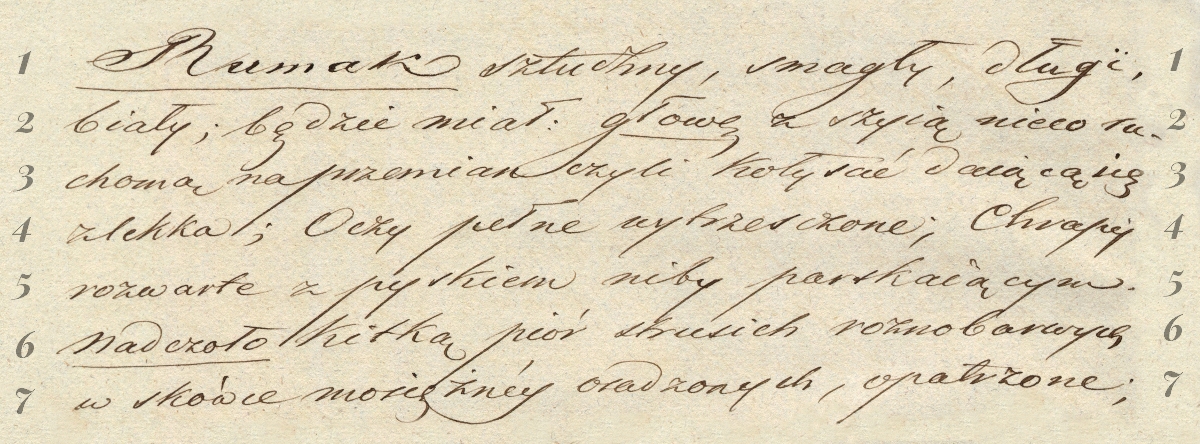 1 Rumak sztuczny, smagły, długi, 1
2 biały; będzie miał: głowę z szyią nieco ru- 2
3 chomą naprzemian czyli kołysać daiącą się 3
4 zlekka; Oczy pełne wytrzeszczone; Chrapy 4
5 rozwarte z pyskiem niby parskaiącym. 5
6 Nadczoło kitką piór strusich rożnobarwych 6
7 w skówce mosiężnéy osadzonych, opatrzone; 7